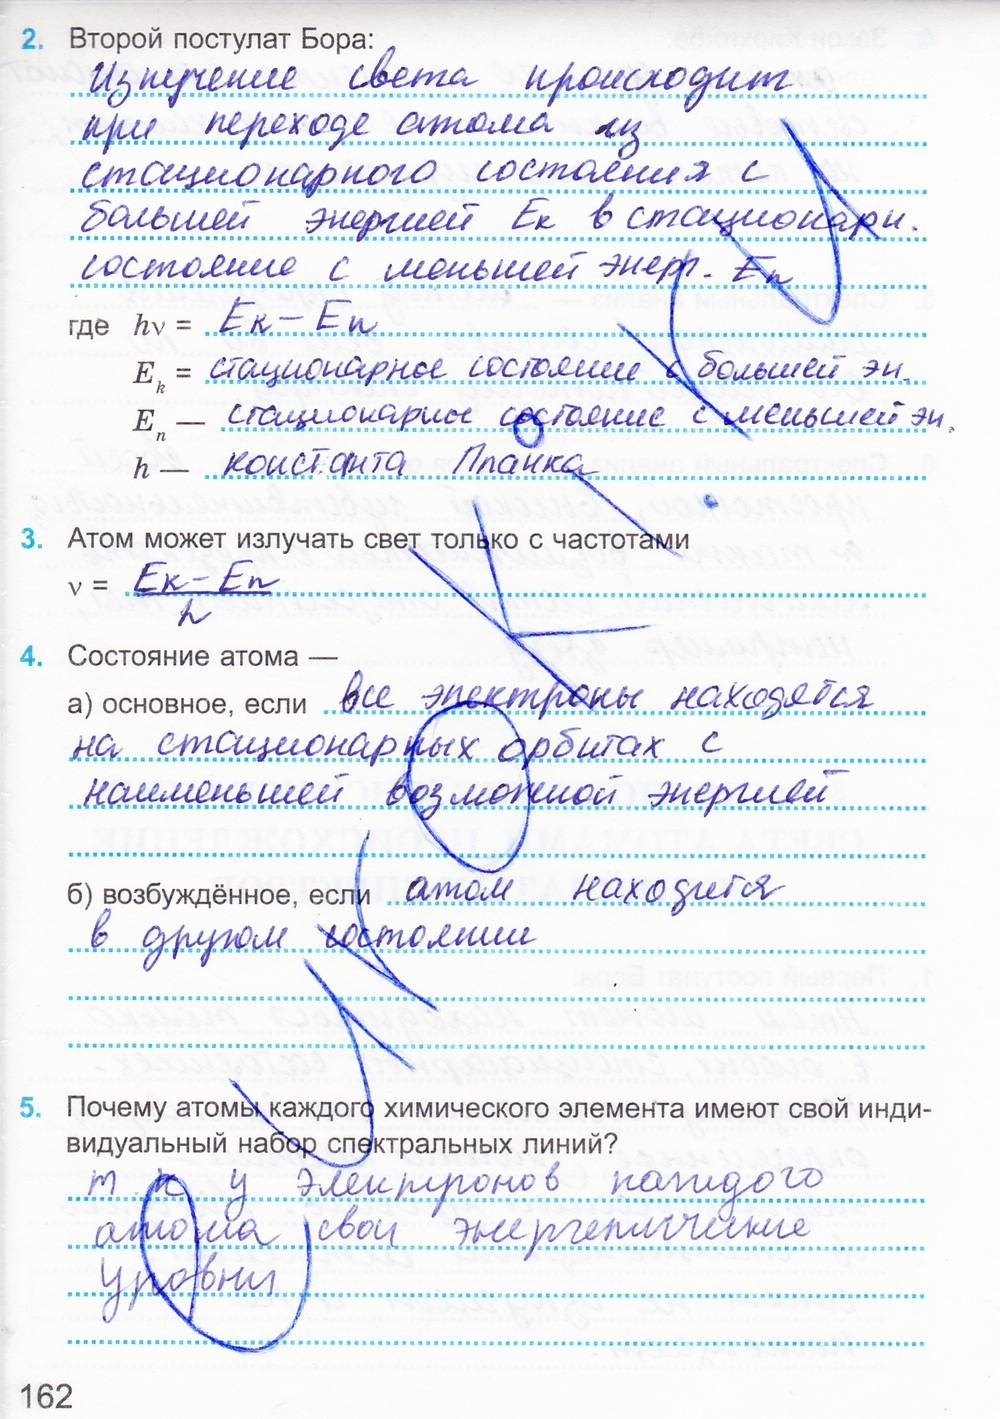 2. Второй постулат Бора:
Излучение света происходит
при переходе атома из
стационарного состояния с
большей энергией Eк в стационарн.
состояние с меньшей энерг. En
где hν = Eк – En
Ek = стационарное состояние с большей эн.
En — стационарное состояние с меньшей эн.
h — константа Планка
3. Атом может излучать свет только с частотами
ν = Eк – En
h
4. Состояние атома —
а) основное, если все электроны находятся
на стационарных орбитах с
наименьшей возможной энергией
б) возбуждённое, если атом находится
в другом состоянии
5. Почему атомы каждого химического элемента имеют свой инди-
видуальный набор спектральных линий?
т к у электронов каждого
атома свои энергетические
уровни
162